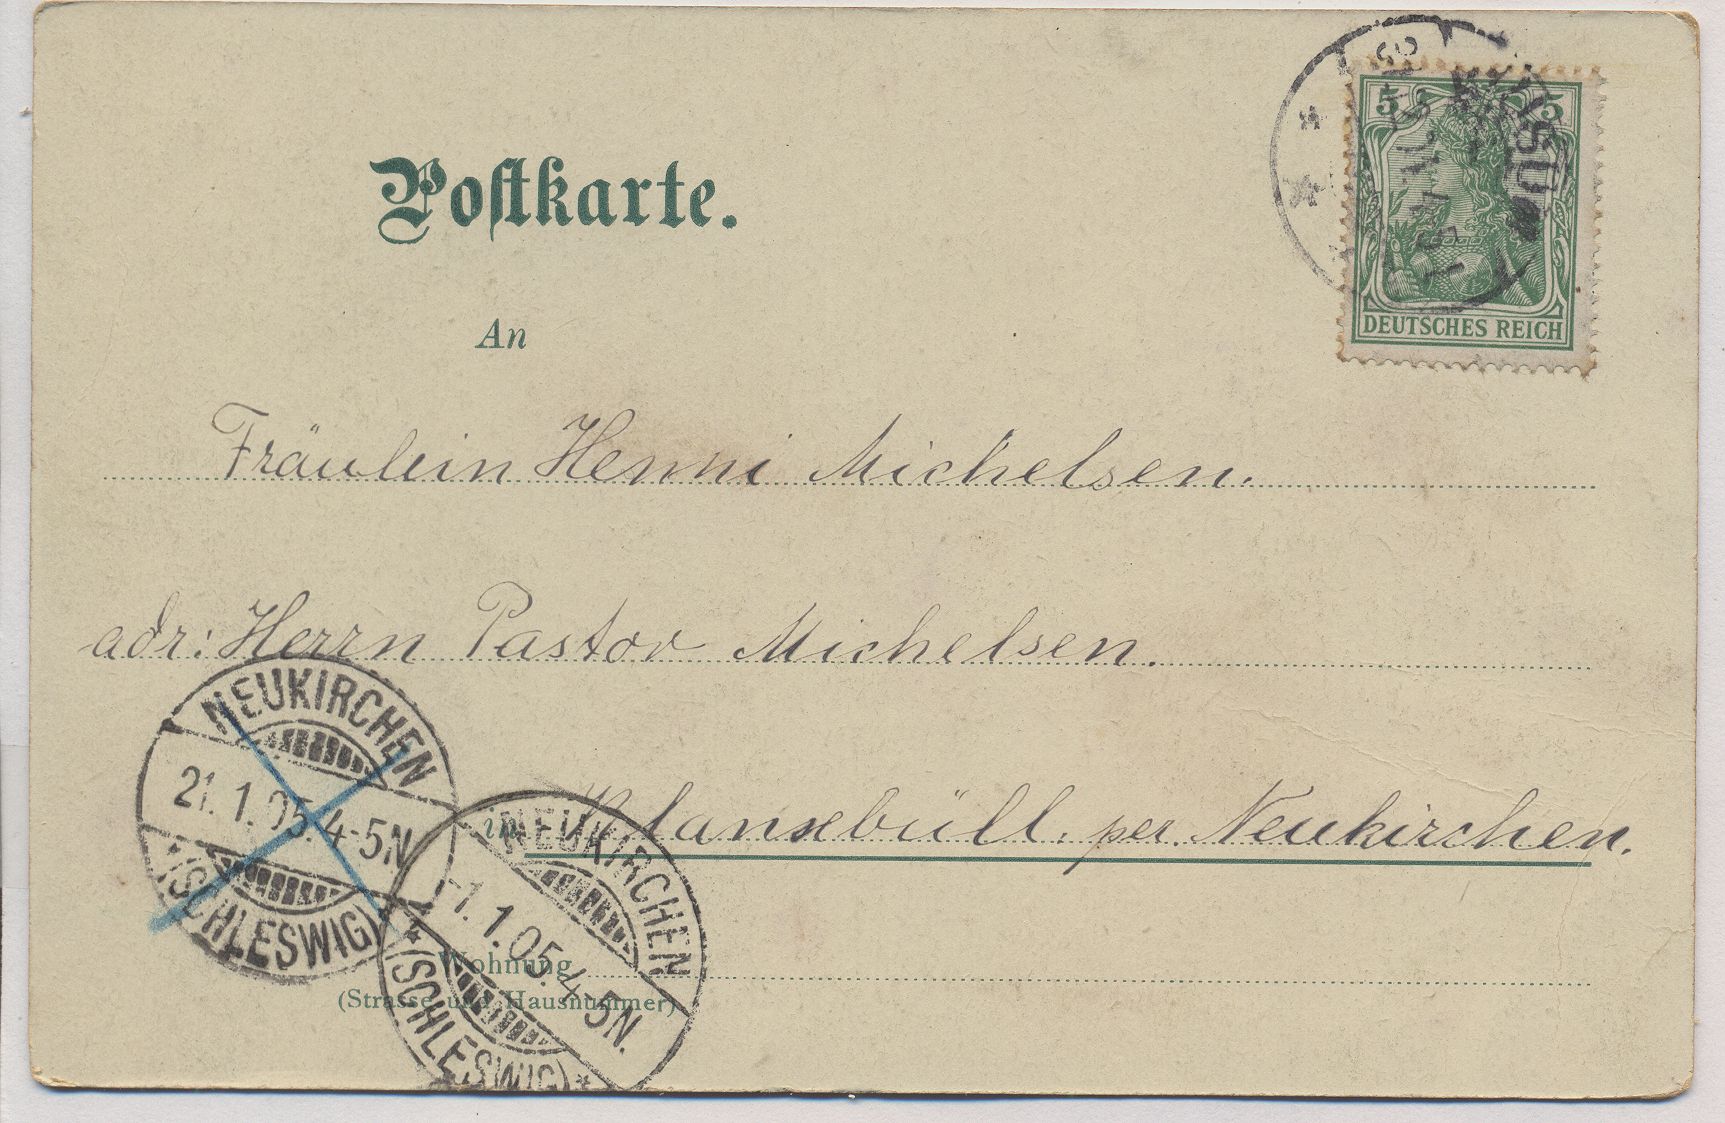 Postkarte.
5 5
DEUTSCHES REICH
An
Fräulein Henni Michelsen.
adr: Herrn Pastor Michelsen.
in Klanxbüll. per. Neukirchen.
Wohnung
(Strasse und Hausnummer)
NEUKIRCHEN
21.1.05.4-5N
(SCHLESWIG)
NEUKIRCHEN
1.1.05.4-5N.
(SCHLESWIG)